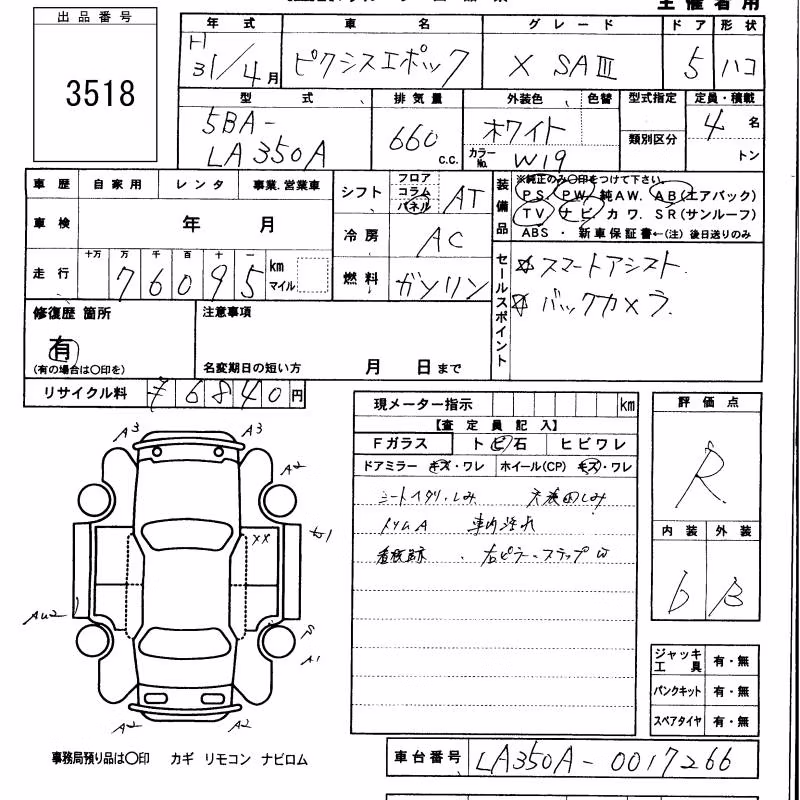 主催者用
出品番号
3518
年式 車名 グレード ドア 形状
H31/4月 ピクシスエポック X SAⅢ 5 ハコ
型式 排気量 外装色 色替 型式指定 定員・積載
5BA-
LA350A 660 C.C. ホワイト カラーNo. W19 類別区分 4名 トン
車歴 自家用 レンタ 事業.営業車
車検 年 月
走行 十万 万 千 百 十 一
76095 km マイル
シフト フロア コラム パネル AT
冷房 AC
燃料 ガソリン
装備品
※純正のみ〇印をつけて下さい.
PS. PW. 純AW. AB(エアバック)
TV ナビ カワ. SR(サンルーフ)
ABS ・ 新車保証書←(注) 後日送りのみ
セールスポイント
☆ スマートアシスト.
☆ バックカメラ.
修復歴 箇所
有
(有の場合は〇印を)
注意事項
名変期日の短い方 月 日まで
リサイクル料 ¥6840円
現メーター指示 km
【査定員記入】
Fガラス トビ石 ヒビワレ
ドアミラー キズ・ワレ ホイール(CP) キズ・ワレ
シートイタリ・しみ
トリムA 車内汚れ
看板跡
評価点
R
内装 外装
b B
ジャッキ 工具 有・無
パンクキット 有・無
スペアタイヤ 有・無
A3 A3
A2
XX
Au2
A1
A2 A2
事務局預り品は〇印 カギ リモコン ナビロム
車台番号 LA350A-0017266